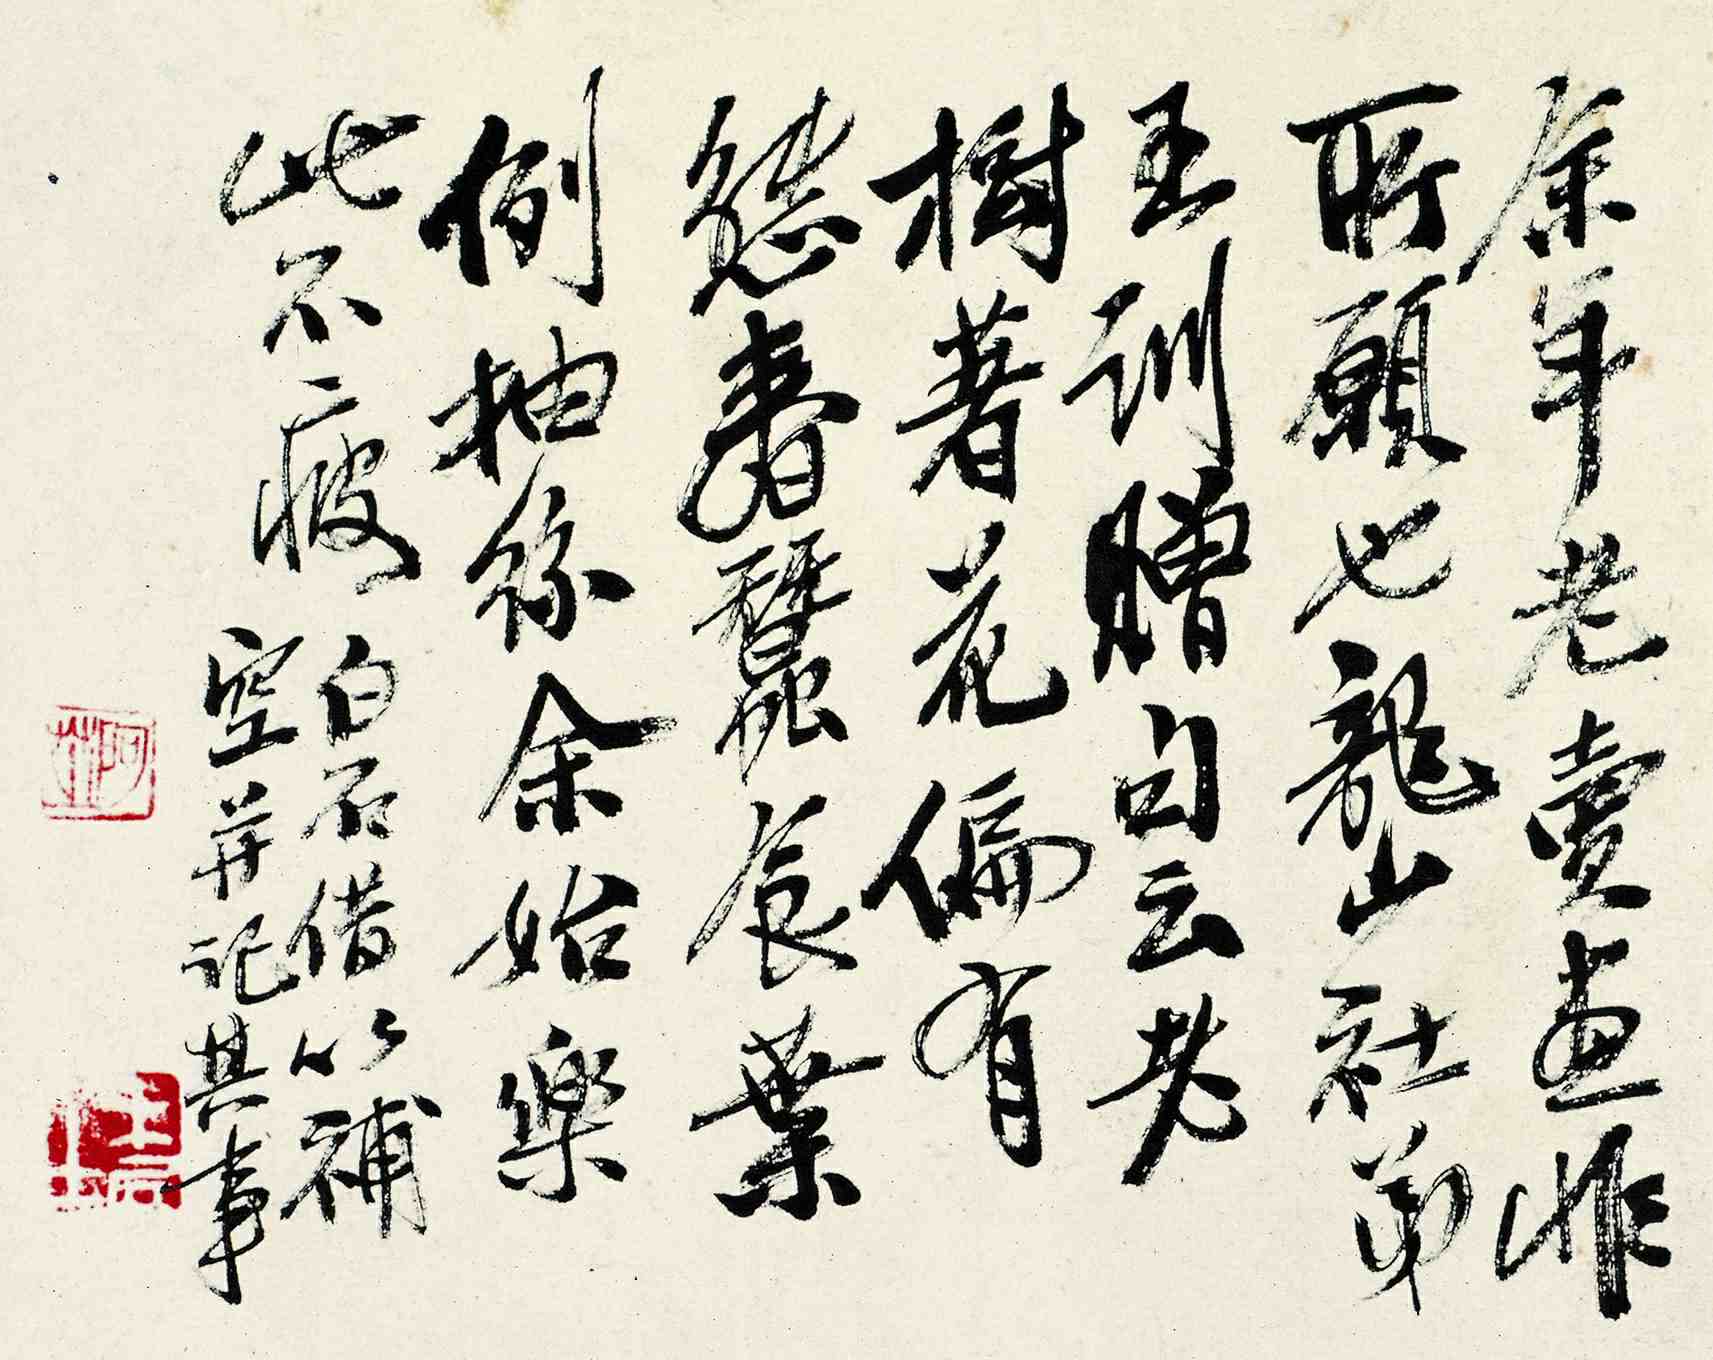 余年老賣畫非
所願也龍山社弟
王訓贈句云老
樹著花偏有
態春蠶食葉
例抽絲余始樂
此不疲
白石借以補
空并記其事